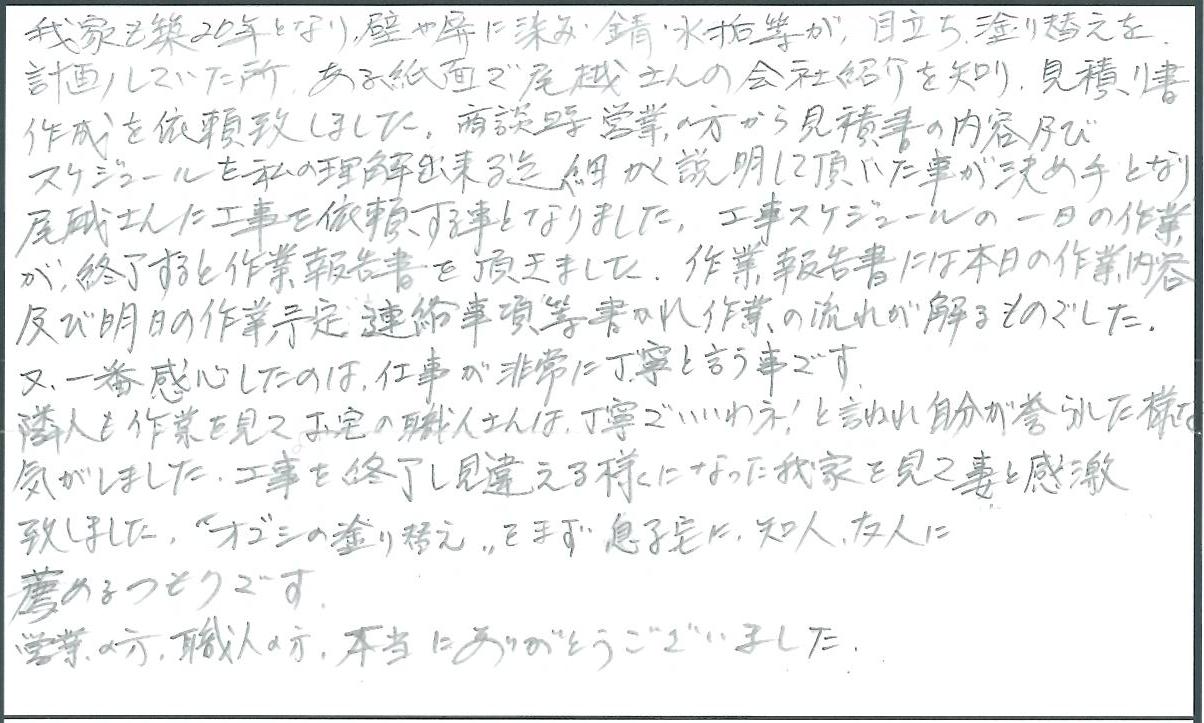 我家も築20年となり、壁や屏に染み・錆・水垢等が、目立ち、塗り替えを
計画していた所、ある紙面で尾越さんの会社紹介を知り、見積り書
作成を依頼致しました。商談時営業の方から見積書の内容及び
スケジュールを私の理解出来る迄、細かく説明して頂いた事が決め手となり
尾越さんに工事を依頼する事となりました。工事スケジュールの一日の作業
が、終了すると作業報告書を頂きました。作業報告書には本日の作業内容
及び明日の作業予定、連絡事項等書かれ作業の流れが解るものでした。
又、一番感心したのは、仕事が非常に丁寧と言う事です。
隣人も作業を見てお宅の職人さんは、丁寧でいいわネ!と言われ自分が誉られた様な
気がしました。工事を終了し見違える様になった我家を見て妻と感激
致しました。“オゴシの塗り替え„をまず息子宅に、知人、友人に
薦めるつもりです。
営業の方、職人の方、本当にありがとうございました。